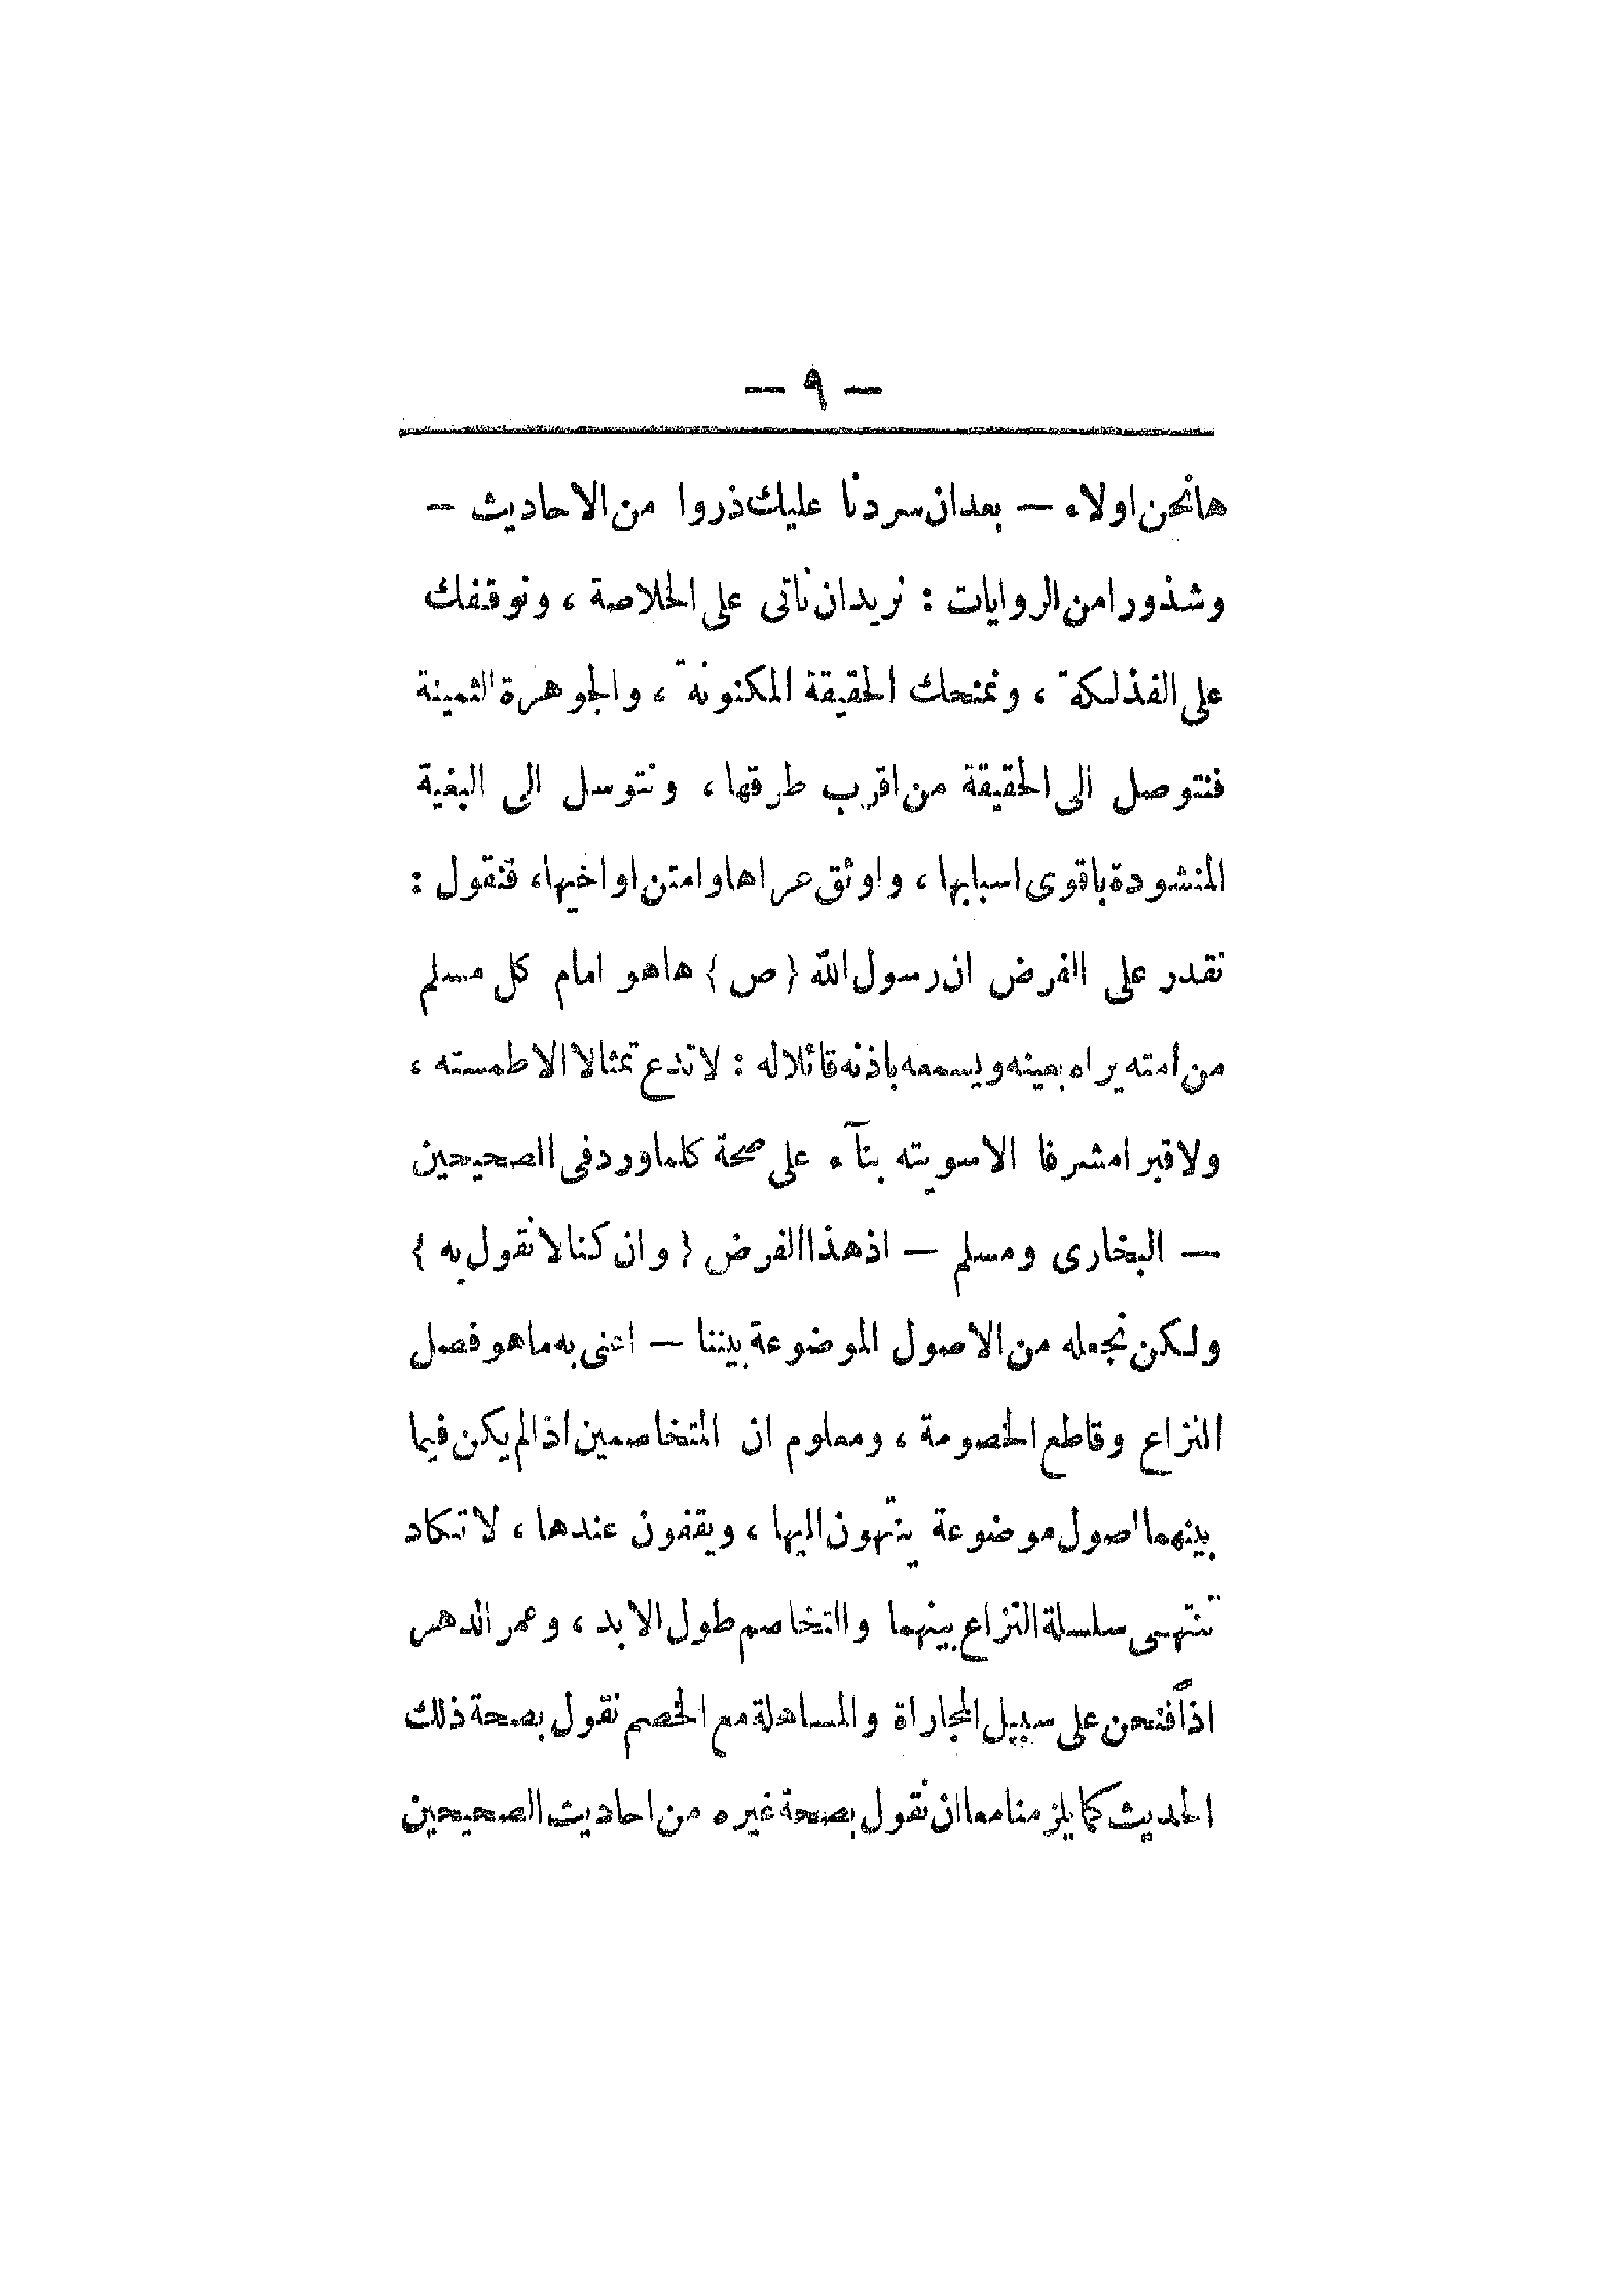 — ٩ —
هانحن اولاء — بعد ان سردنا عليك ذروا من الاحاديث —
وشذورا من الروايات : نريد ان ناتى على الخلاصة ، ونوقفك
على الفذلكة ، ونمنحك الحقيقة المكنونة ، والجوهرة الثمينة
فنتوصل الى الحقيقة من اقرب طرقها ، ونتوسل الى البغية
المنشودة باقوى اسبابها ، واوثق عراها وامتن اواخيها ، فنقول :
نقدر على الفرض ان رسول الله { ص } هاهو امام كل مسلم
من امته يراه بعينه ويسمعه باذنه قائلا له : لا تدع تمثالا الا طمسته ،
ولا قبرا مشرفا الا سويته بنآء على صحة كلما ورد فى الصحيحين
— البخارى ومسلم — اذ هذا الفرض { وان كنا لا نقول به }
ولكن نجعله من الاصول الموضوعة بيننا — اعنى به ما هو فصل
النزاع وقاطع الخصومة ، ومعلوم ان المتخاصمين اذا لم يكن فيما
بينهما اصول موضوعة ينتهون اليها ، ويقفون عندها ، لا تكاد
تنتهى سلسلة النزاع بينهما والتخاصم طول الابد ، وعمر الدهر
اذاً فنحن على سبيل المجاراة والمساهلة مع الخصم نقول بصحة ذلك
الحديث كما يلزمنا معا ان نقول بصحة غيره من احاديث الصحيحين